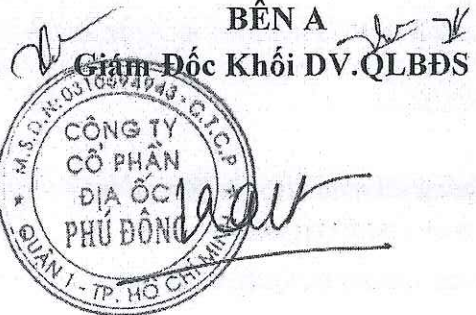 BÊN A
Giám Đốc Khối DV.QLBĐS
M.S.D.N: 0310694943 - C.T.C.P
CÔNG TY
CỔ PHẦN
ĐỊA ỐC
PHÚ ĐÔNG
QUẬN 1 - TP. HỒ CHÍ MINH